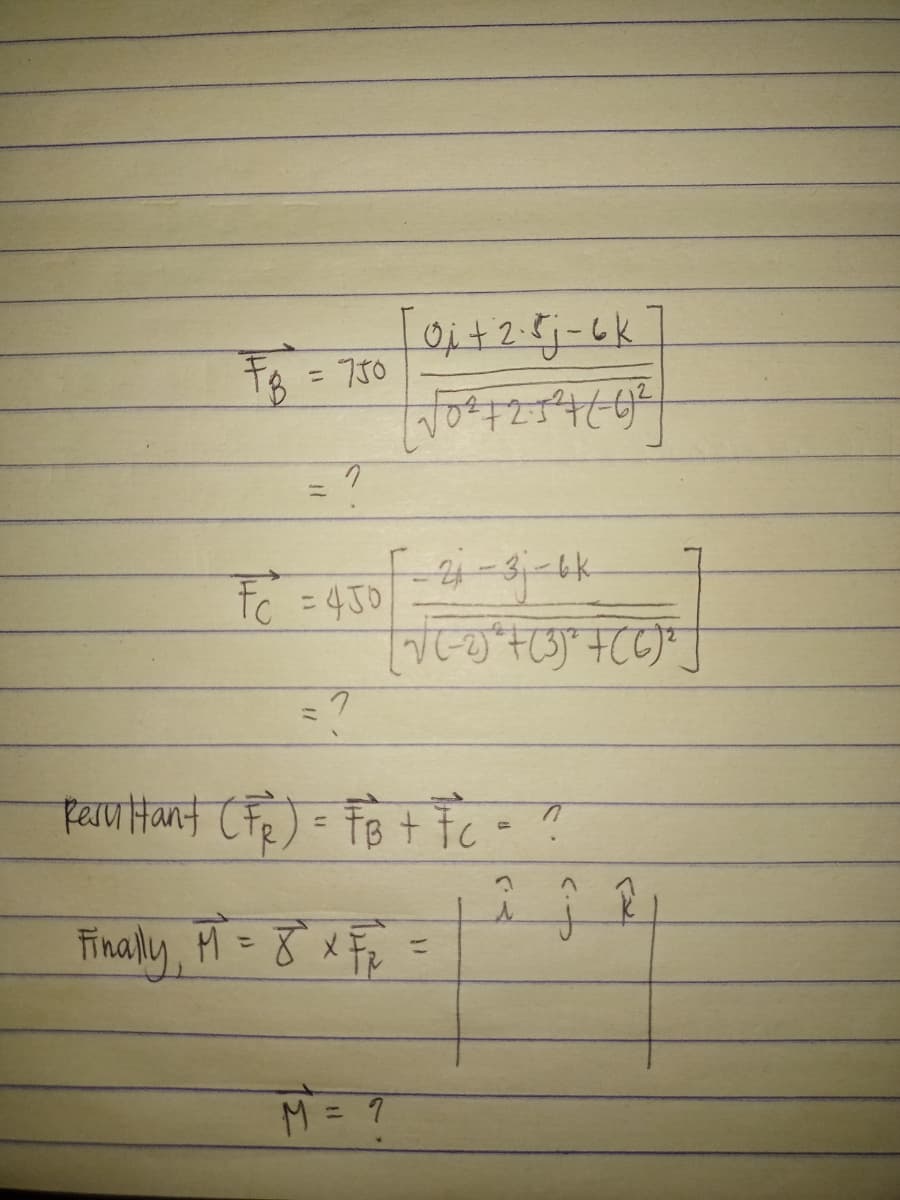 F⃗_B = 750 [ (0i + 2.5j - 6k) / √(0² + 2.5² + (-6)²) ]
= ?
F⃗_C = 450 [ (-2i - 3j - 6k) / √((-2)² + (3)² + (6)²) ]
= ?
Resultant (F⃗_R) = F⃗_B + F⃗_C = ?
Finally, M⃗ = r⃗ × F⃗_R = | î ĵ k̂ |
M⃗ = ?